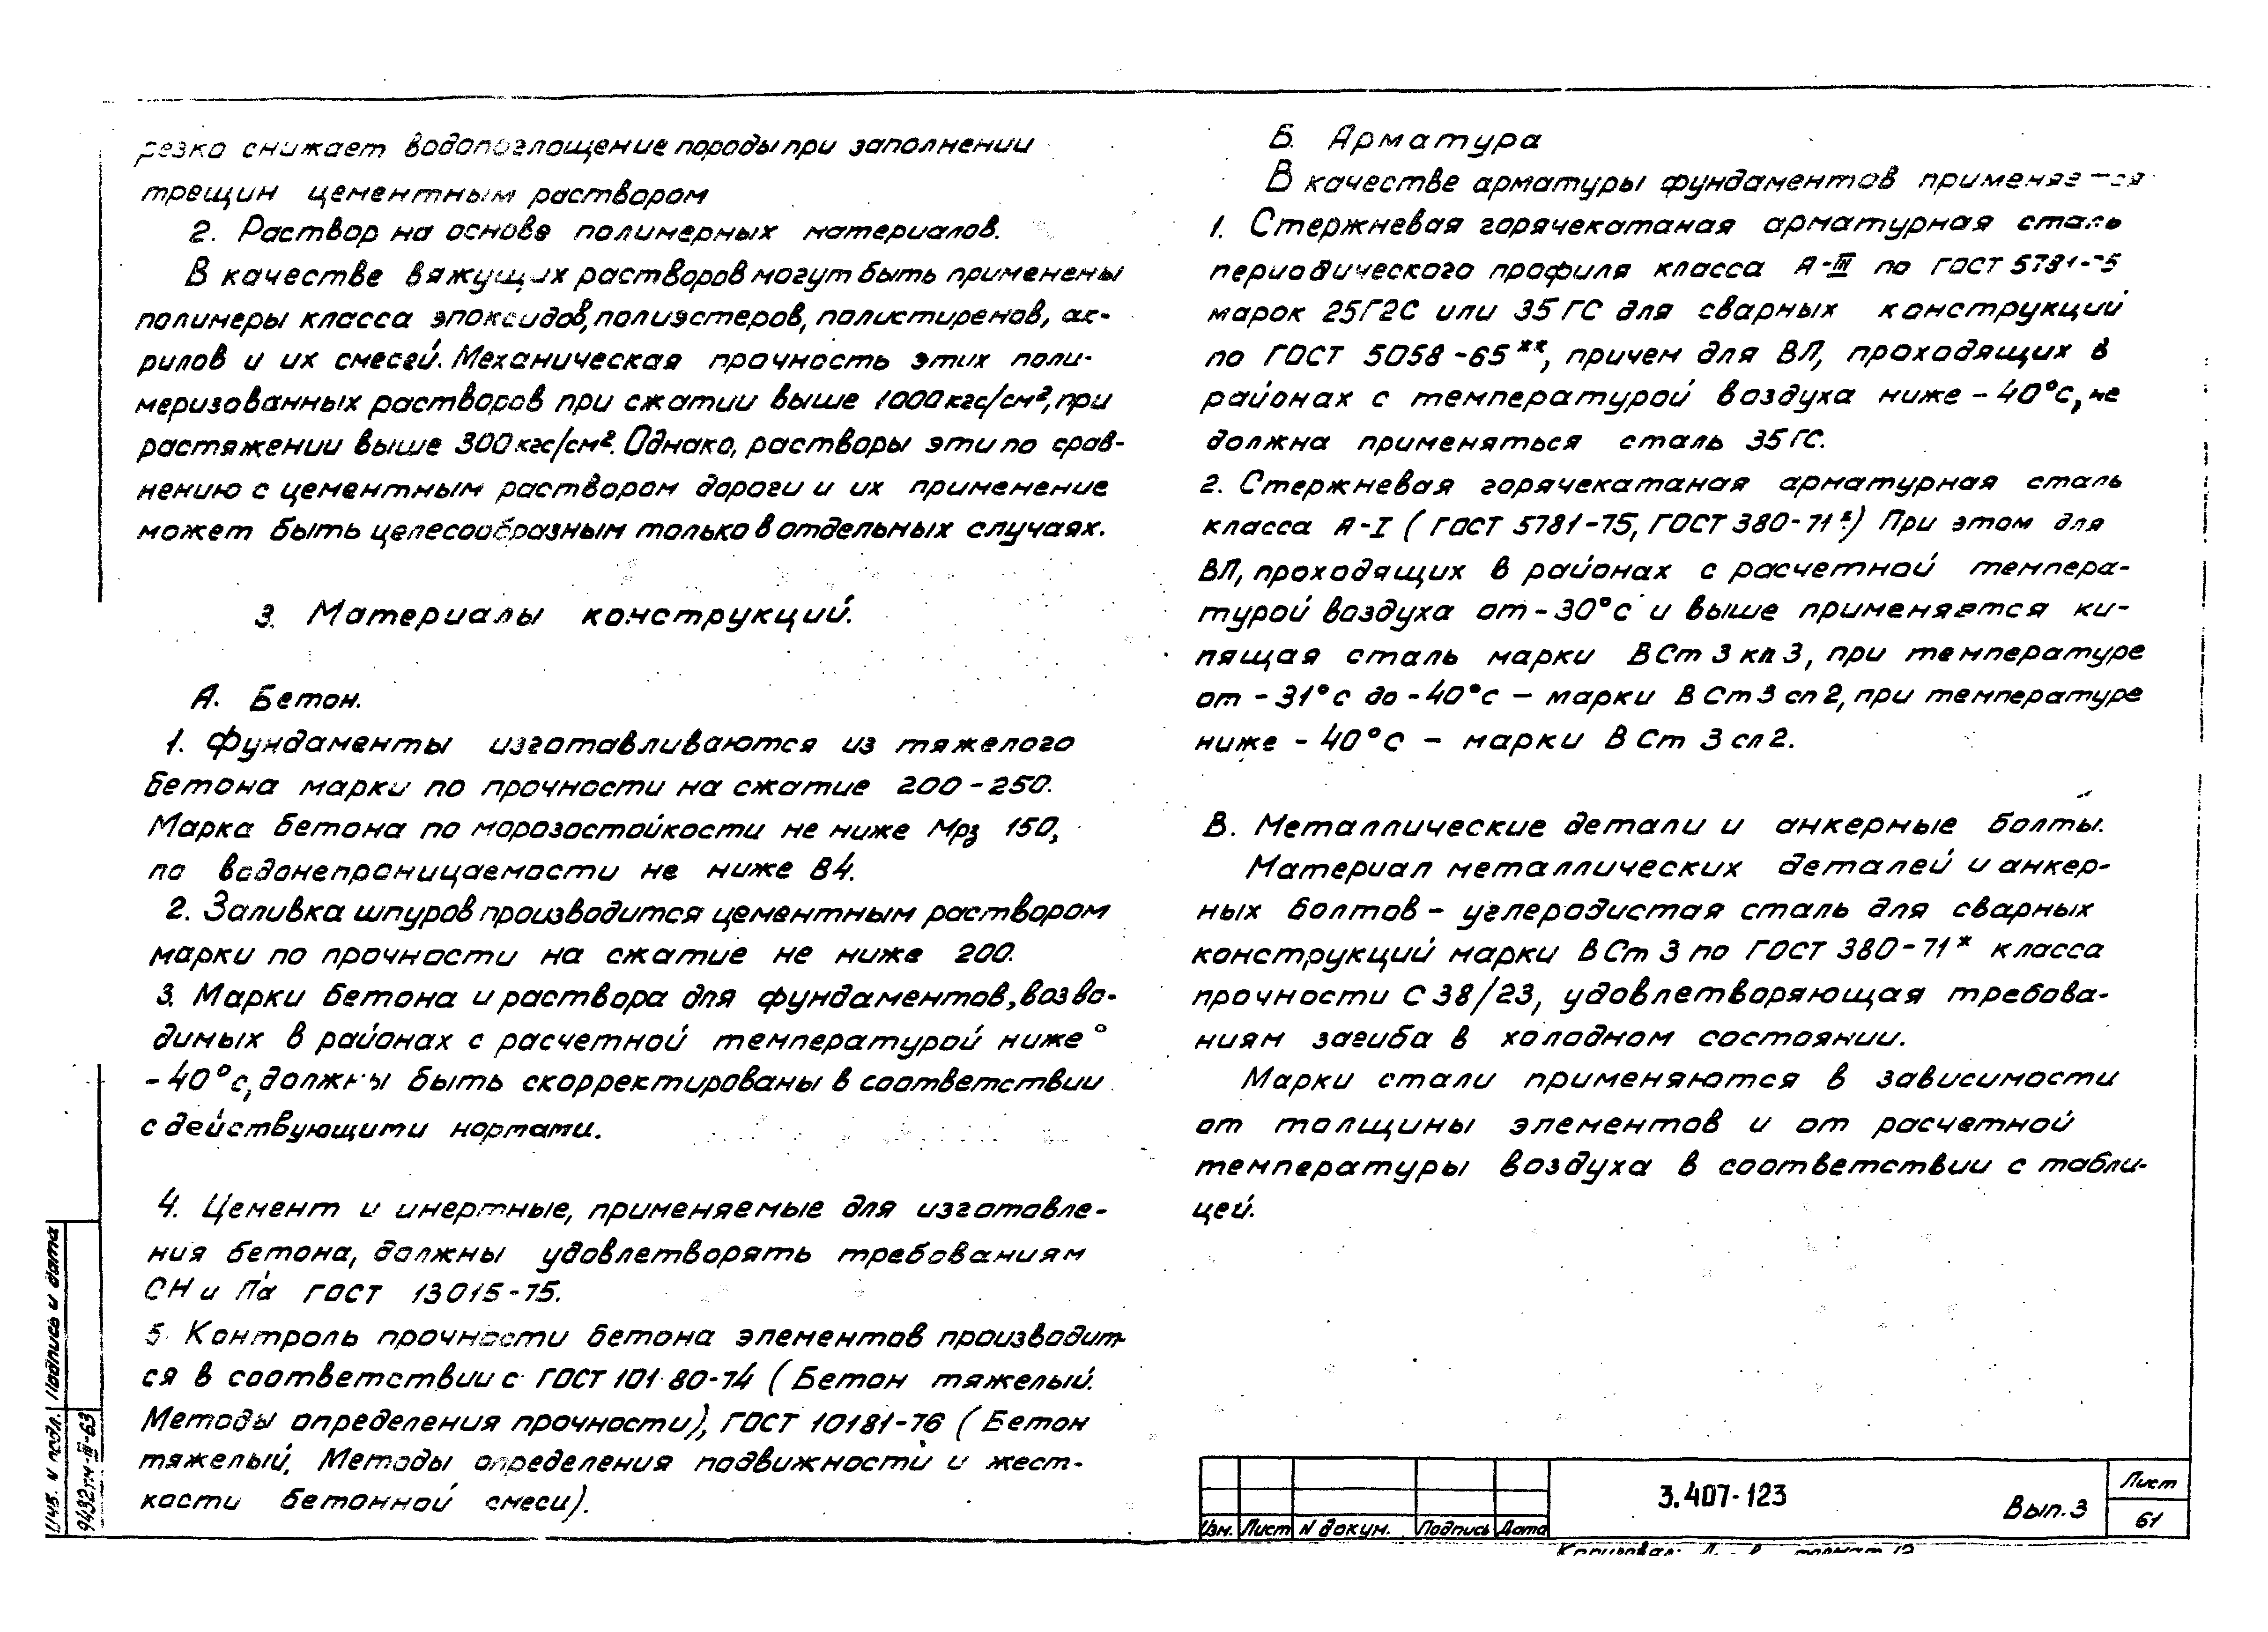 резко снижает водопоглощение породы при заполнении
трещин цементным раствором
2. Раствор на основе полимерных материалов.
В качестве вяжущих растворов могут быть применены
полимеры класса эпоксидов, полиэстеров, полистиренов, ак-
рилов и их смесей. Механическая прочность этих поли-
меризованных растворов при сжатии выше 1000 кгс/см², при
растяжении выше 300 кгс/см². Однако, растворы эти по срав-
нению с цементным раствором дороги и их применение
может быть целесообразным только в отдельных случаях.
3. Материалы конструкций.
А. Бетон.
1. Фундаменты изготавливаются из тяжелого
бетона марки по прочности на сжатие 200-250.
Марка бетона по морозостойкости не ниже Мрз 150,
по водонепроницаемости не ниже В4.
2. Заливка шпуров производится цементным раствором
марки по прочности на сжатие не ниже 200.
3. Марки бетона и раствора для фундаментов, возво-
димых в районах с расчетной температурой ниже
-40°с, должны быть скорректированы в соответствии
с действующими нормами.
4. Цемент и инертные, применяемые для изготовле-
ния бетона, должны удовлетворять требованиям
СН и П а ГОСТ 13015-75.
5. Контроль прочности бетона элементов производит-
ся в соответствии с ГОСТ 10180-74 (Бетон тяжелый.
Методы определения прочности), ГОСТ 10181-76 (Бетон
тяжелый. Методы определения подвижности и жест-
кости бетонной смеси).
Б. Арматура
В качестве арматуры фундаментов применяется
1. Стержневая горячекатаная арматурная сталь
периодического профиля класса А-III по ГОСТ 5781-75
марок 25Г2С или 35ГС для сварных конструкций
по ГОСТ 5058-65**, причем для ВЛ, проходящих в
районах с температурой воздуха ниже -40°с, не
должна применяться сталь 35ГС.
2. Стержневая горячекатаная арматурная сталь
класса А-I (ГОСТ 5781-75, ГОСТ 380-71*) При этом для
ВЛ, проходящих в районах с расчетной темпера-
турой воздуха от -30°с и выше применяется ки-
пящая сталь марки ВСт3кп3, при температуре
от -31°с до -40°с - марки ВСт3сп2, при температуре
ниже -40°с - марки ВСт3сп2.
В. Металлические детали и анкерные болты.
Материал металлических деталей и анкер-
ных болтов - углеродистая сталь для сварных
конструкций марки ВСт3 по ГОСТ 380-71* класса
прочности С38/23, удовлетворяющая требова-
ниям загиба в холодном состоянии.
Марки стали применяются в зависимости
от толщины элементов и от расчетной
температуры воздуха в соответствии с табли-
цей.
Инв. N подл. Подпись и дата
9432тм-III-63
Изм. Лист N докум. Подпись Дата
3.407-123
Вып.3
Лист
61
Копировал: формат 12